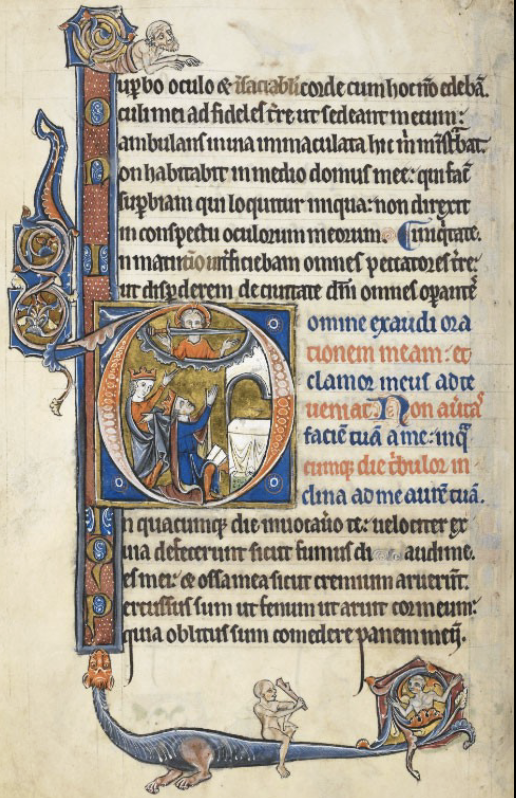 Supbo oculo & isaciabili corde cum hoc nō edebā.
Oculi mei ad fideles tr̄e ut sedeant mecum:
ambulans in uia immaculata hic m̄ mīst̄bat.
Non habitabit in medio domus mee: qui fac̄
supbiam qui loquitur iniqua: non direxit
in conspectu oculorum meorum. Ciuitate.
In matutino īt̄ficiebam omnes peccatores tr̄e:
ut dispderem de ciuitate dn̄i omnes opantes
Domine exaudi ora
tionem meam: et
clamor meus ad te
ueniat. Non auertas
faciē tuā a me: in q̄
cumq; die tribulor in
clina ad me aurē tuā.
In quacumq; die inuocauero te: uelociter ex
Quia defecerunt sicut fumus di audi me.
es mei: & ossa mea sicut cremium aruerūt.
Percussus sum ut fenum ut aruit cor meum:
quia oblitus sum comedere panem meū.